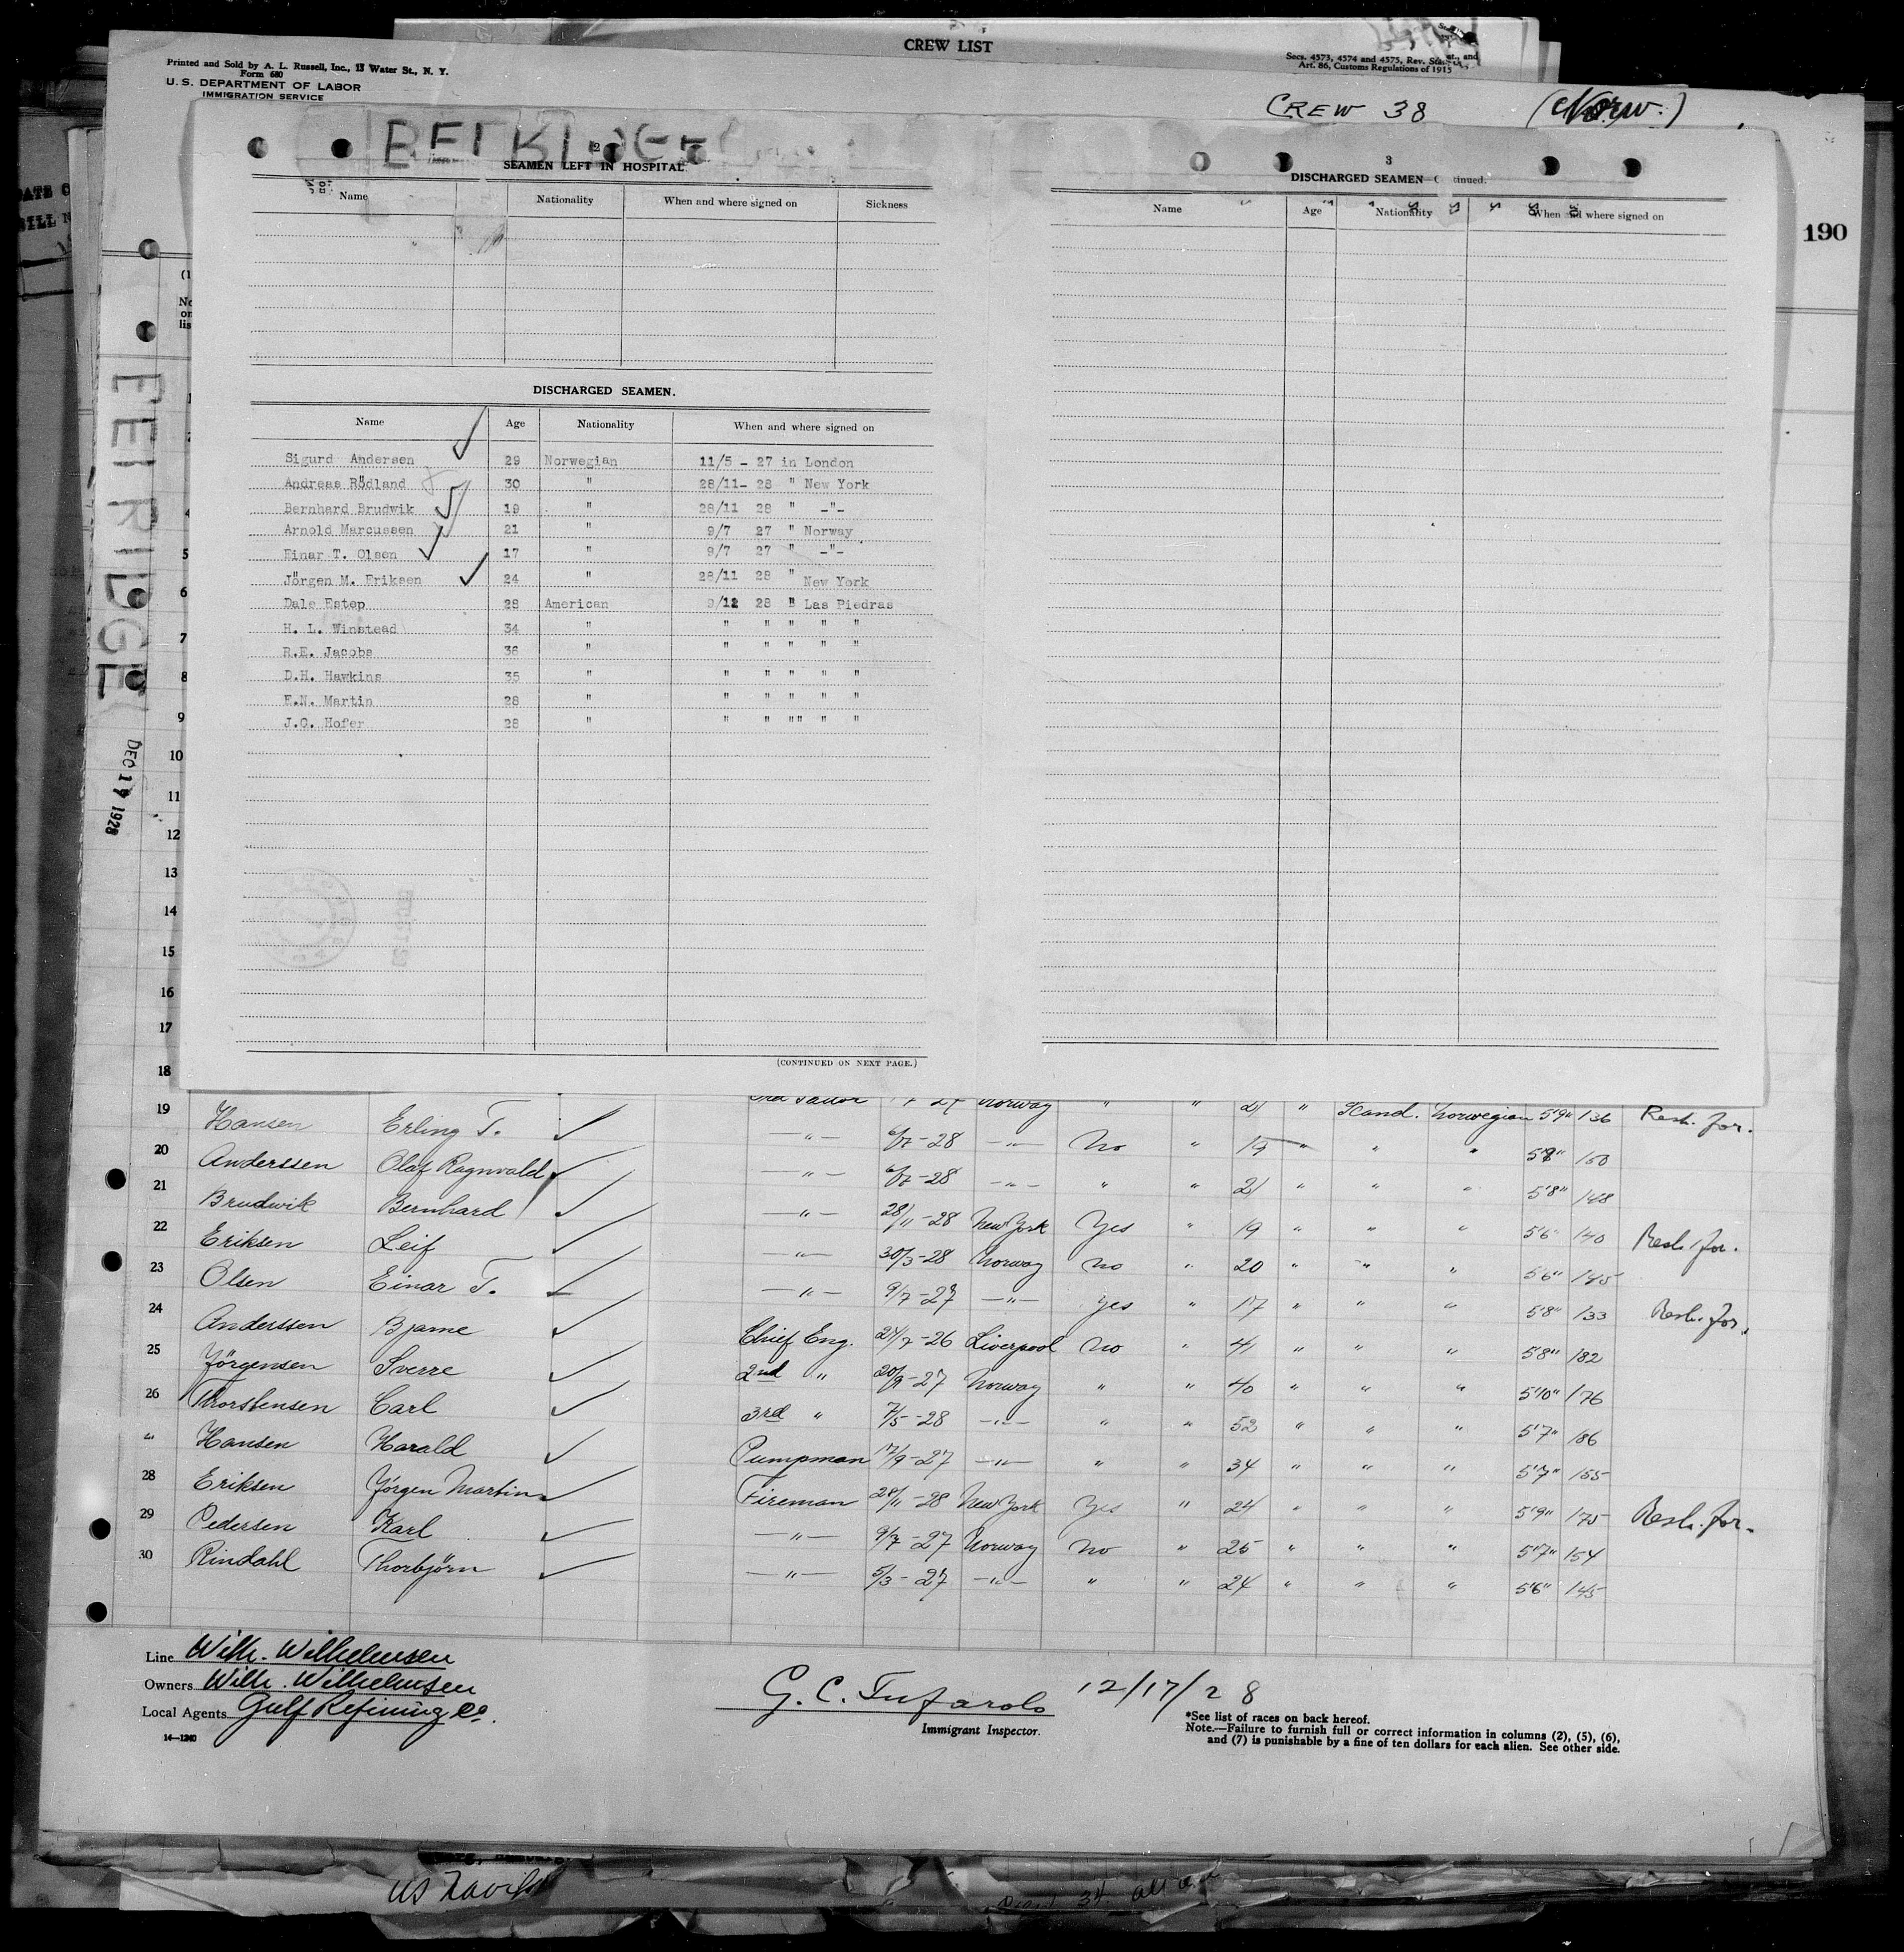 CREW LIST
Printed and Sold by A. L. Russell, Inc., 13 Water St., N. Y.
Form 680
U. S. DEPARTMENT OF LABOR
IMMIGRATION SERVICE
Secs. 4573, 4574 and 4575, Rev. and
Art. 86, Customs Regulations of 1915
CREW 38 (Norw.)
190
2
SEAMEN LEFT IN HOSPITAL
Name Nationality When and where signed on Sickness
DISCHARGED SEAMEN.
Name Age Nationality When and where signed on
Sigurd Andersen 29 Norwegian 11/5 - 27 in London
Andreas Rödland 30 " 28/11- 28 " New York
Bernhard Brudwik 19 " 28/11 28 " -"-
Arnold Marcussen 21 " 9/7 27 " Norway
Einar T. Olsen 17 " 9/7 27 " -"-
Jörgen M. Eriksen 24 " 28/11 28 " New York
Dale Estep 29 American 9/12 28 " Las Piedras
H. L. Winstead 34 " " " " " "
R.E. Jacobs 36 " " " " " "
D.H. Hawkins 35 " " " " " "
E.N. Martin 28 " " " " " "
J.C. Hofer 28 " " " "" " "
(CONTINUED ON NEXT PAGE.)
3
DISCHARGED SEAMEN—C tinued.
Name Age Nationality When and where signed on
DEC 17 1928
5
6
7
8
9
10
11
12
13
14
15
16
17
18
Norway " " 21 " Scand. Norwegian 5'9" 136
19 Hansen Erling T. —"— 6/7-28 —"— No " 19 " " " 150
20 Anderssen Olaf Ragnvald —"— 6/7-28 —"— " " 21 " " " 5'8" 148
21 Brudwik Bernhard —"— 28/11-28 New York Yes " 19 " " " 5'6" 140
22 Eriksen Leif —"— 30/3-28 Norway No " 20 " " " 5'6" 145
23 Olsen Einar T. —"— 9/7-27 —"— Yes " 17 " " " 5'8" 133
24 Anderssen Bjarne Chief Eng. 24/7-26 Liverpool No " 41 " " " 5'8" 182
25 Jörgensen Sverre 2nd " 20/9-27 Norway " " 40 " " " 5'10" 176
26 Thorstensen Carl 3rd " 7/5-28 —"— " " 52 " " " 5'7" 186
Hansen Harald Pumpman 17/9-27 —"— " " 34 " " " 5'7" 155
28 Eriksen Jörgen Martin Fireman 28/11-28 New York Yes " 24 " " " 5'9" 175
29 Pedersen Karl —"— 9/7-27 Norway No " 25 " " " 5'7" 154
30 Rindahl Thorbjörn —"— 5/3-27 —"— " " 24 " " " 5'6" 145
Line Wilh. Wilhelmsen
Owners Wilh. Wilhelmsen
Local Agents Gulf Refining Co.
14—1240
G. C. Tufarolo 12/17/28
Immigrant Inspector.
*See list of races on back hereof.
Note.—Failure to furnish full or correct information in columns (2), (5), (6),
and (7) is punishable by a fine of ten dollars for each alien. See other side.